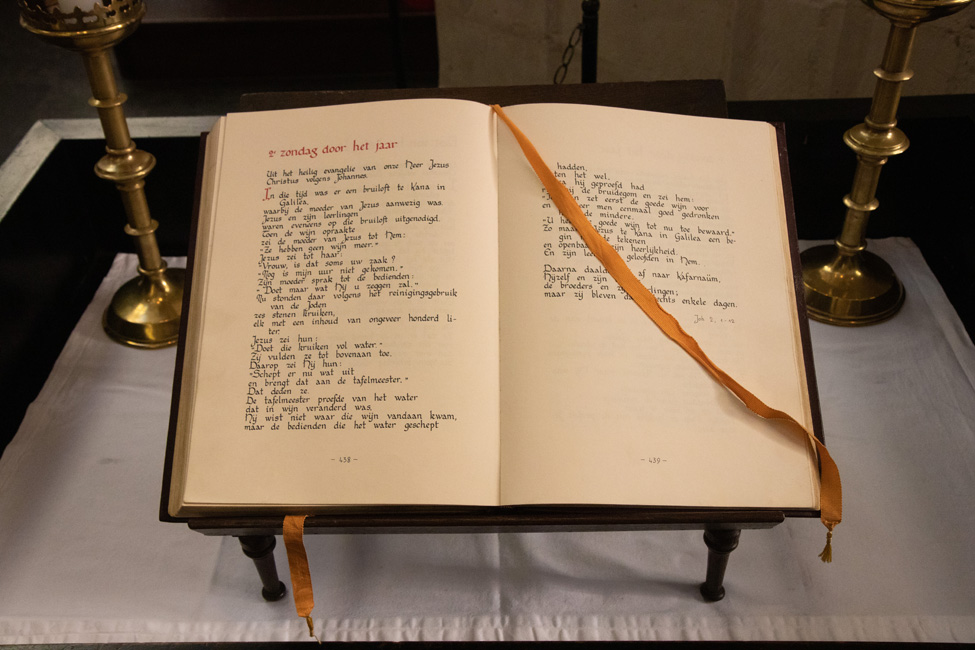 2e zondag door het jaar
Uit het heilig evangelie van onze Heer Jezus
Christus volgens Johannes.
In die tijd was er een bruiloft te Kana in
Galilea,
waarbij de moeder van Jezus aanwezig was.
Jezus en zijn leerlingen
waren eveneens op die bruiloft uitgenodigd.
Toen de wijn opraakte
zei de moeder van Jezus tot Hem:
"Ze hebben geen wijn meer."
Jezus zei tot haar:
"Vrouw, is dat soms uw zaak?
"Nog is mijn uur niet gekomen."
Zijn moeder sprak tot de bedienden:
"Doet maar wat Hij u zeggen zal."
Nu stonden daar volgens het reinigingsgebruik
van de Joden
zes stenen kruiken,
elk met een inhoud van ongeveer honderd li-
ter.
Jezus zei hun:
"Doet die kruiken vol water."
Zij vulden ze tot bovenaan toe.
Daarop zei Hij hun:
"Schept er nu wat uit
en brengt dat aan de tafelmeester."
Dat deden ze.
De tafelmeester proefde van het water
dat in wijn veranderd was.
Hij wist niet waar die wijn vandaan kwam,
maar de bedienden die het water geschept
- 438 -
hadden,
ten het wel.
hij geproefd had
de bruidegom en zei hem:
zet eerst de goede wijn voor
en men eenmaal goed gedronken
de mindere.
"U goede wijn tot nu toe bewaard."
Zo Jezus te Kana in Galilea een be-
gin tekenen
en openbaar ijn heerlijkheid.
En zijn geloofden in Hem.
Daarna daald af naar Kafarnaüm,
Hijzelf en zijn
de broeders en lingen;
maar zij bleven echts enkele dagen.
Joh 2, 1-12
- 439 -